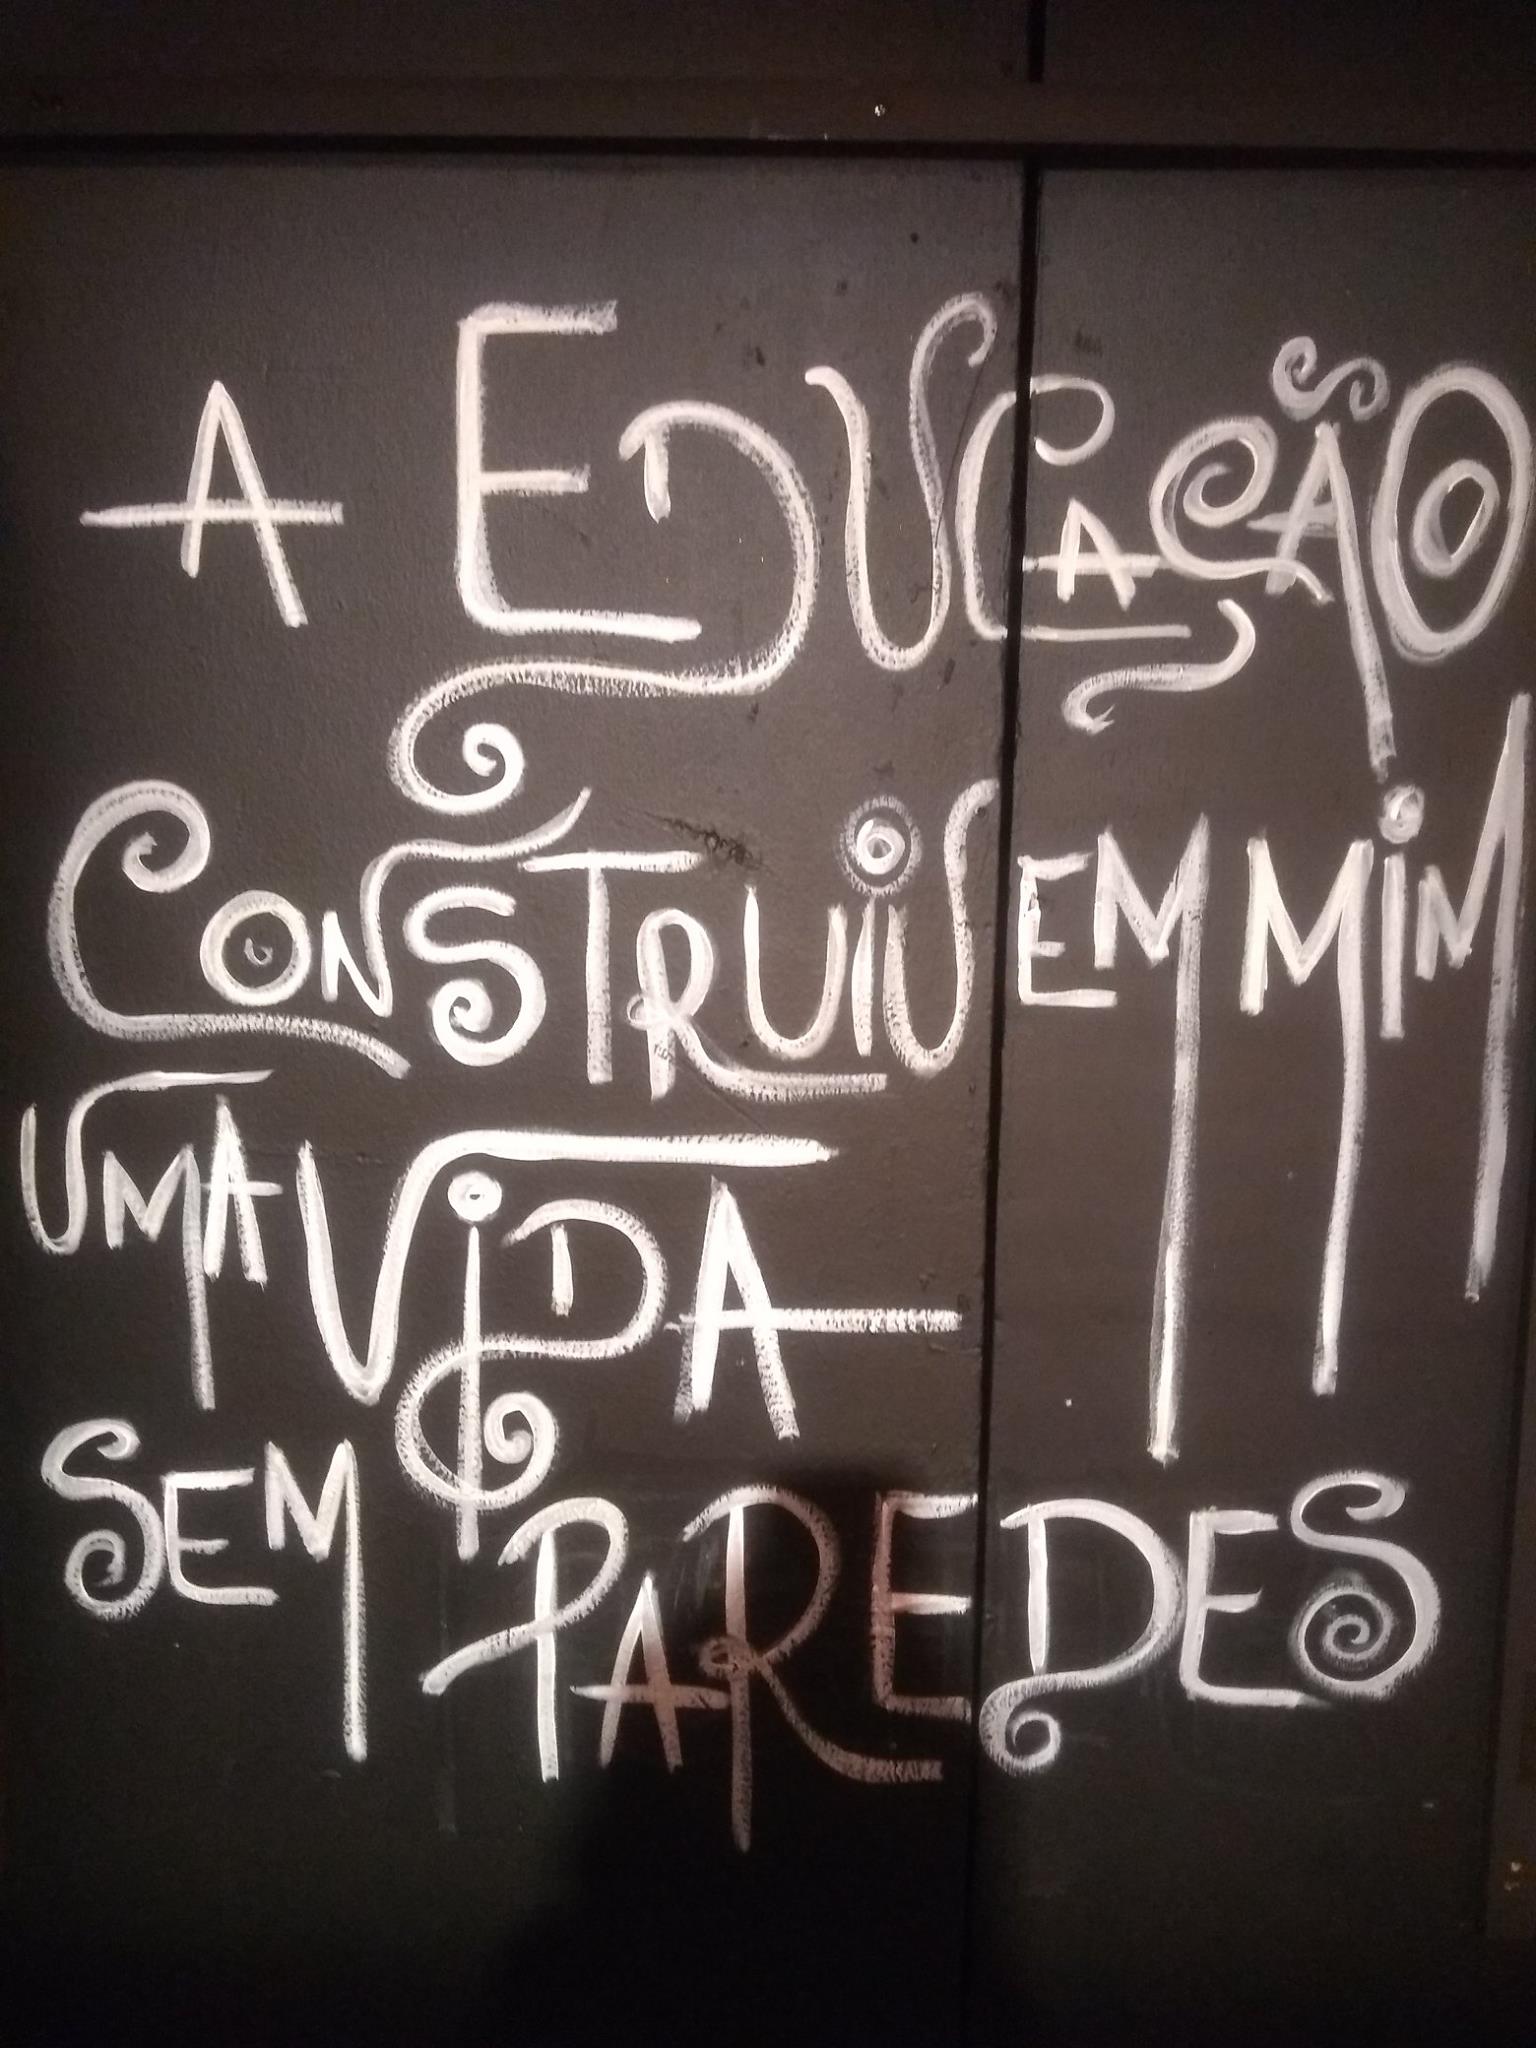 A EDUCAÇÃO
CONSTRUIU EM MIM
UMA VIDA
SEM PAREDES